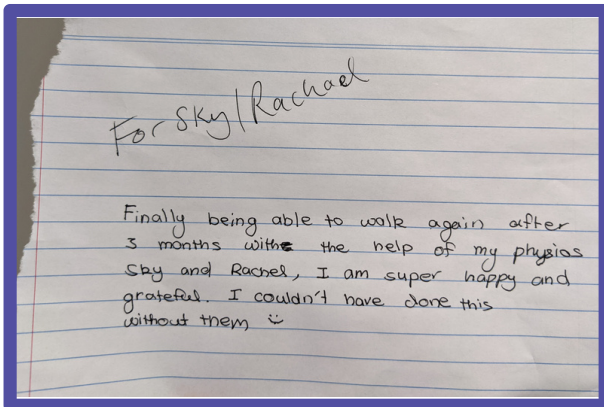 For Sky/Rachael
Finally being able to walk again after
3 months with the help of my physios
Sky and Rachel, I am super happy and
grateful. I couldn't have done this
without them ☺